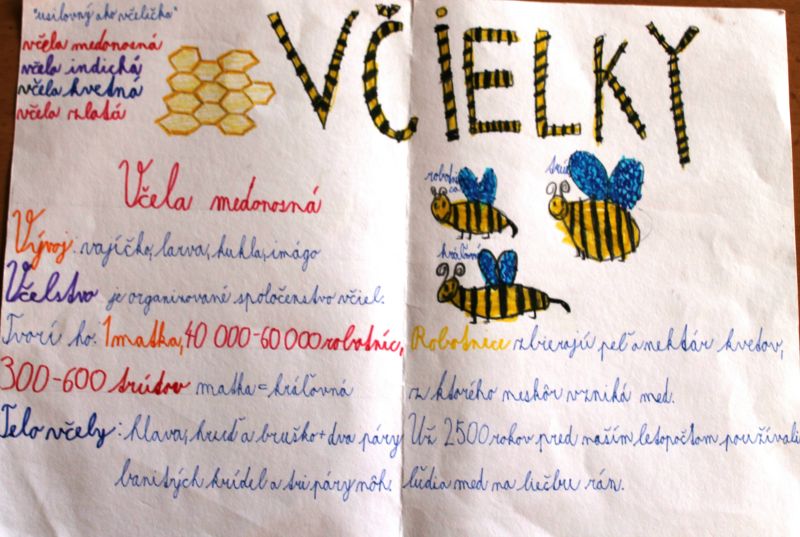 "usilovný ako včelička"
VČIELKY
včela medonosná
včela indická
včela kvetná
včela zlatá
robotnica
trúd
kráľovná
Včela medonosná
Vývoj: vajíčko, larva, kukla, imágo
Včelstvo je organizované spoločenstvo včiel.
Tvorí ho: 1 matka, 40 000-60 000 robotníc,
300-600 trúdov matka = kráľovná
Telo včely: hlava, hruď a bruško + dva páry
banitých krídel a tri páry nôh.
Robotnice zbierajú peľ a nektár kvetov,
z ktorého neskôr vzniká med.
Už 2500 rokov pred naším letopočtom používali
ľudia med na liečbu rán.